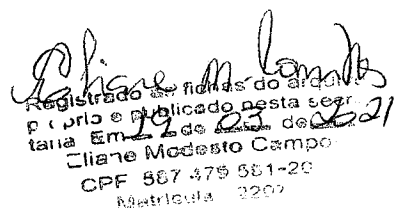 Registrado em fichas do arquivo
próprio e publicado nesta secre-
taria Em 29 de 03 de 2021
Eliane Modesto Campo
CPF 887 475 581-20
Matrícula